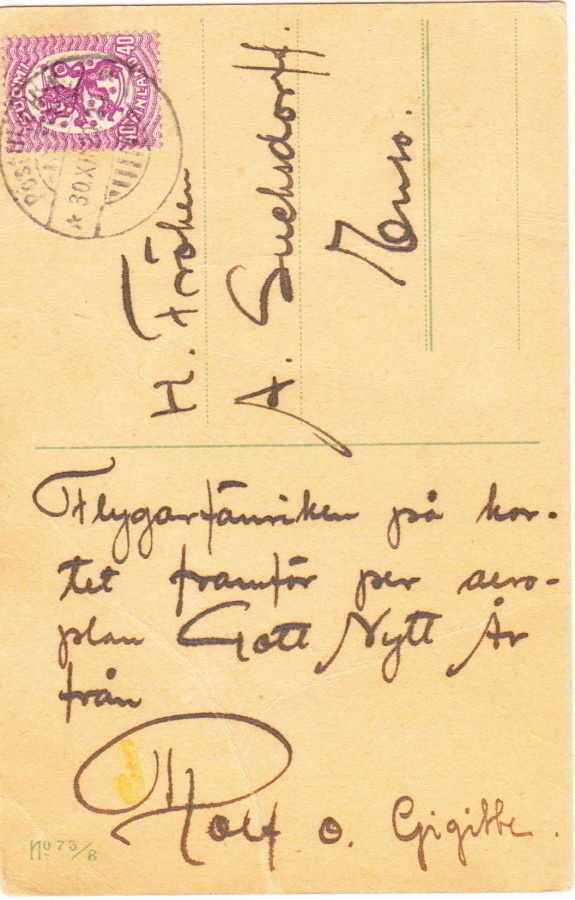 SUOMI
40
40
30.XII
H. Fröken
A. Suchsdorff.
Enso.
Flygarfänriken på kor-
tet framför per aero-
plan Gott Nytt År
från
Rolf o. Gigibbe.
No 73/8